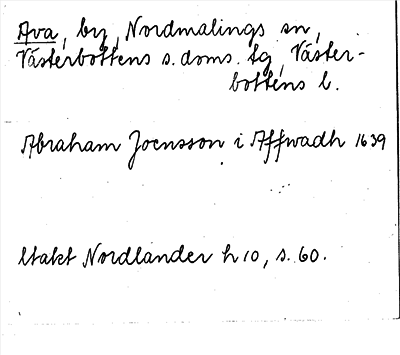 Ava, by, Nordmalings sn,
Västerbottens s. doms. tg, Väster-
bottens l.
Abraham Joensson i Affwadh 1639
Nordlander h 10, s. 60.